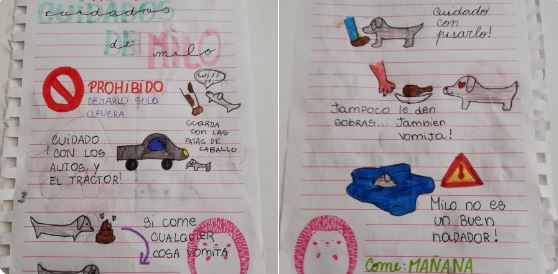 cuidados
CUIDADOS
de milo
DE MILO
PROHIBIDO
DEJARLO SOLO
AFUERA
GUARDA
CON LAS
PATAS DE
CABALLO
CUIDADO
CON LOS
AUTOS Y
EL TRACTOR!
SI COME
CUALQUIER
COSA VOMITA
CUIDADO
CON
PISARLO!
TAMPOCO LE DEN
SOBRAS... TAMBIEN
VOMITA!
MILO NO ES
UN BUEN
NADADOR!
COME: MAÑANA